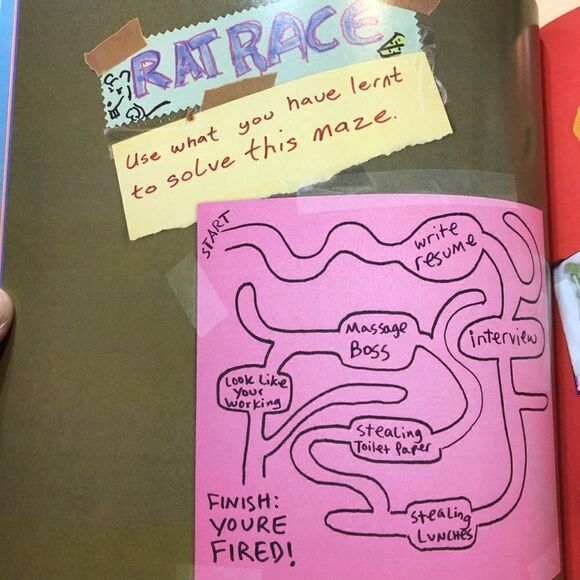 RAT RACE
Use what you have lernt
to solve this maze.
START
write
resume
interview
Massage
Boss
Look Like
Your
working
Stealing
Toilet Paper
Stealing
LUNCHES
FINISH:
YOURE
FIRED!